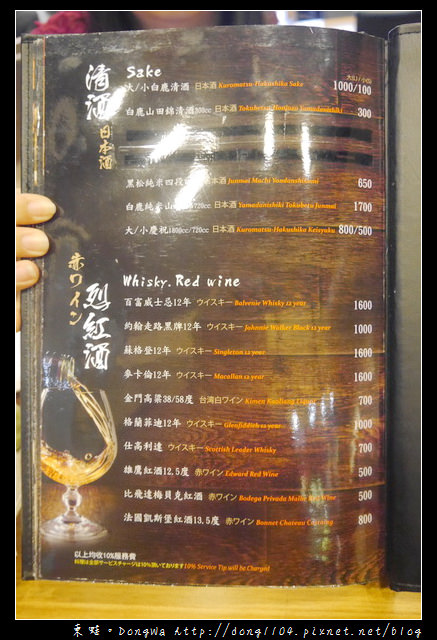 清酒 日本酒
Sake
大瓶/小瓶
大/小白鹿清酒 日本酒 Kuromatsu-Hakushika Sake 1000/100
白鹿山田錦清酒300cc 日本酒 Tokubetsu Honjozo Yamadanishiki 300
黑松純米四段 日本酒 Junmai Mochi Yondanshikomi 650
白鹿純米山田錦720cc 日本酒 Yamadanishiki Tokubetu Junmai 1700
大/小慶祝1800cc/720cc 日本酒 Kuromatsu-Hakushika Keisyuku 800/500
赤ワイン 烈紅酒
Whisky.Red wine
百富威士忌12年 ウイスキー Balvenie Whisky 12 year 1600
約翰走路黑牌12年 ウイスキー Johnnie Walker Black 12 year 1000
蘇格登12年 ウイスキー Singleton 12 year 1600
麥卡倫12年 ウイスキー Macallan 12 year 1600
金門高粱38/58度 台湾白ワイン Kinmen Kaoliang Liquor 700
格蘭菲迪12年 ウイスキー Glenfiddich 12 year 1000
仕高利達 ウイスキー Scottish Leader Whisky 700
雄鷹紅酒12.5度 赤ワイン Edward Red Wine 500
比飛達梅貝克紅酒 赤ワイン Bodega Privada Malbec Red Wine 500
法國凱斯堡紅酒13.5度 赤ワイン Bonnet Chateau Castaing 800
以上均收10%服務費
料理は全部サービスチャージは10%頂いております10% Service Tip will be Charged
東蛙。DongWa http://dong1104.pixnet.net/blog